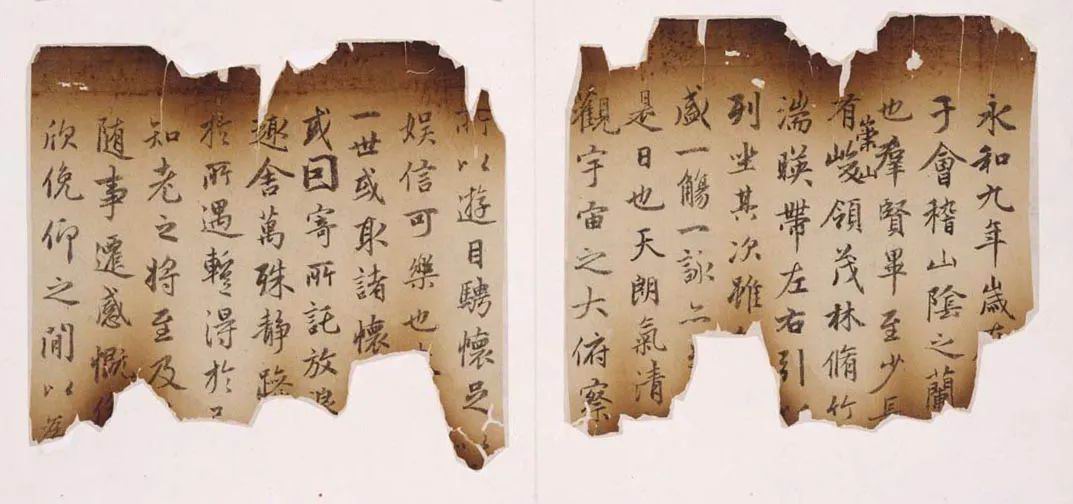 永和九年歲在
于會稽山陰之蘭
也羣賢畢至少長
有崇山峻領茂林脩竹
湍暎帶左右引以
列坐其次雖
盛一觴一詠亦
是日也天朗氣清
觀宇宙之大俯察
所以遊目騁懷足以
娛信可樂也
一世或取諸懷
或因寄所託放浪
趣舍萬殊靜躁
於所遇蹔得於
知老之將至及
随事遷感慨係
欣俛仰之閒以為